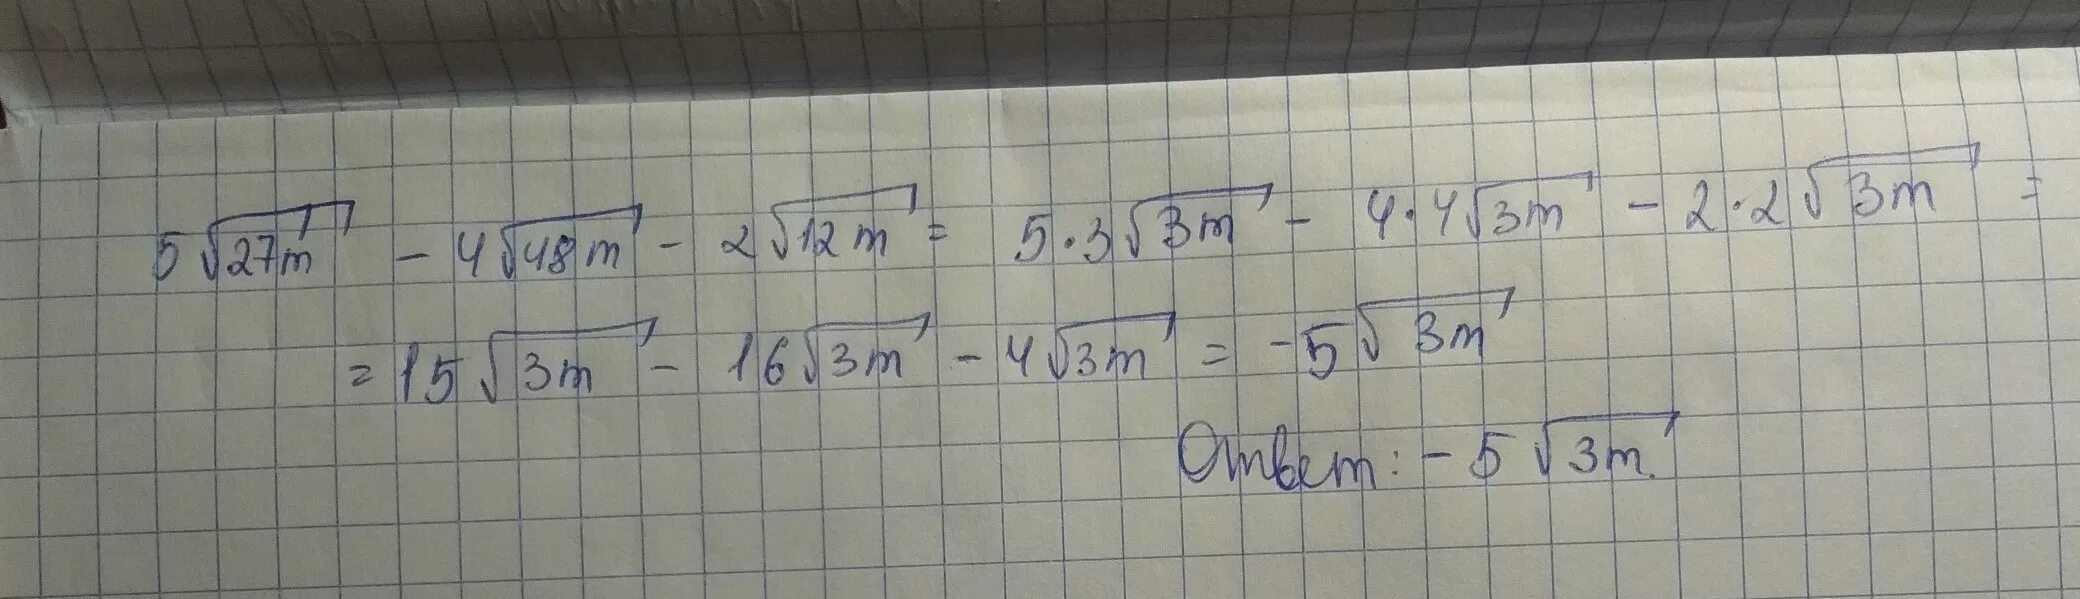 5√27m - 4√48m - 2√12m = 5·3√3m - 4·4√3m - 2·2√3m =
= 15√3m - 16√3m - 4√3m = -5√3m
Ответ: - 5√3m.